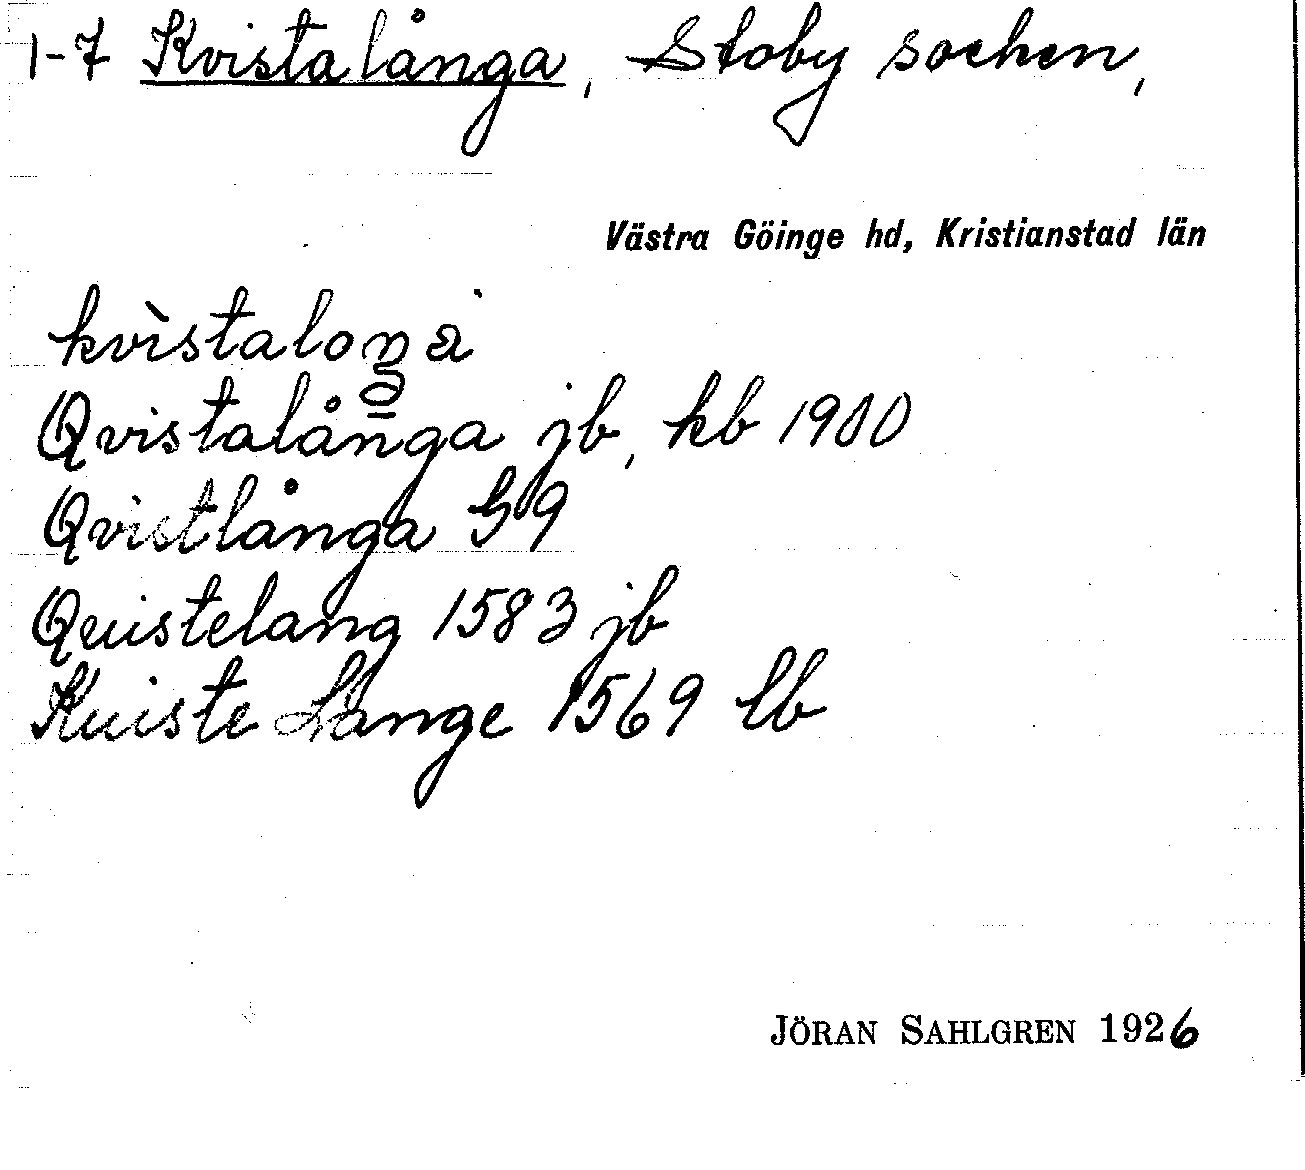 1-7 Kvistalånga, Stoby socken,
Västra Göinge hd, Kristianstad län
kvìstaloŋa
Qvistalånga jb, kb 1900
Qvistlånga G9
Quistelang 1583 jb
Kuiste Lange 1569 lb
JÖRAN SAHLGREN 1926